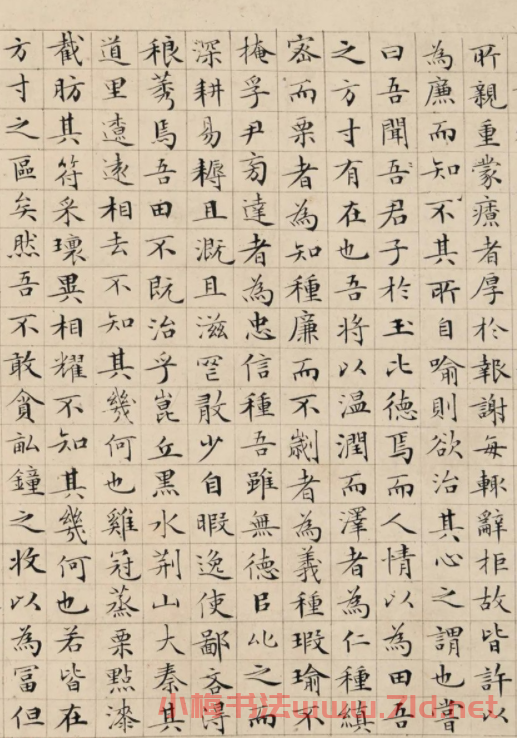 所親重蒙療者厚於報謝每輒辭拒故皆許以
為廉而知不其所自喻則欲治其心之謂也嘗
曰吾聞吾君子於玉比德焉而人情以為田吾
之方寸有在也吾將以温潤而澤者為仁種縝
宻而栗者為知種廉而不劌者為義種瑕瑜不
掩孚尹旁達者為忠信種吾雖無德㠯比之而
深耕易耨且溉且滋罕敢少自暇逸使鄙吝得
稂莠焉吾田不既治乎崑丘黑水荆山大秦其
道里遼遠相去不知其幾何也雞冠蒸栗點漆
截肪其符采瓌異相耀不知其幾何也若皆在
方寸之區矣然吾不敢貪畝鐘之收以為富但
小楷书法www.7ld.net